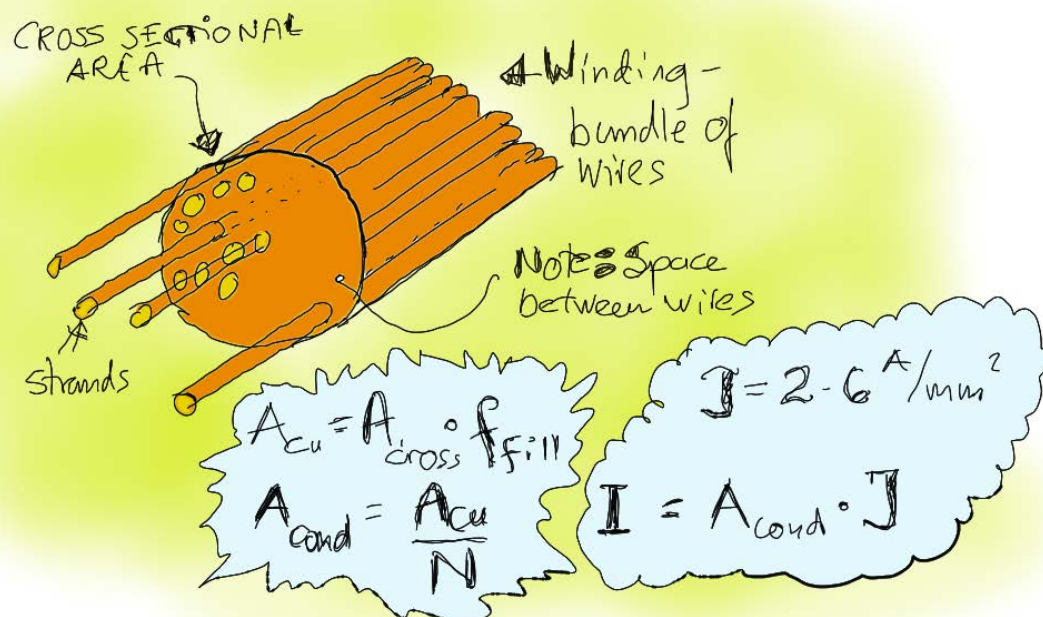 CROSS SECTIONAL
AREA
Winding -
bundle of
wires
Note: Space
between wires
strands
A_cu = A_cross · f_fill
A_cond = A_cu / N
J = 2 - 6 A/mm²
I = A_cond · J